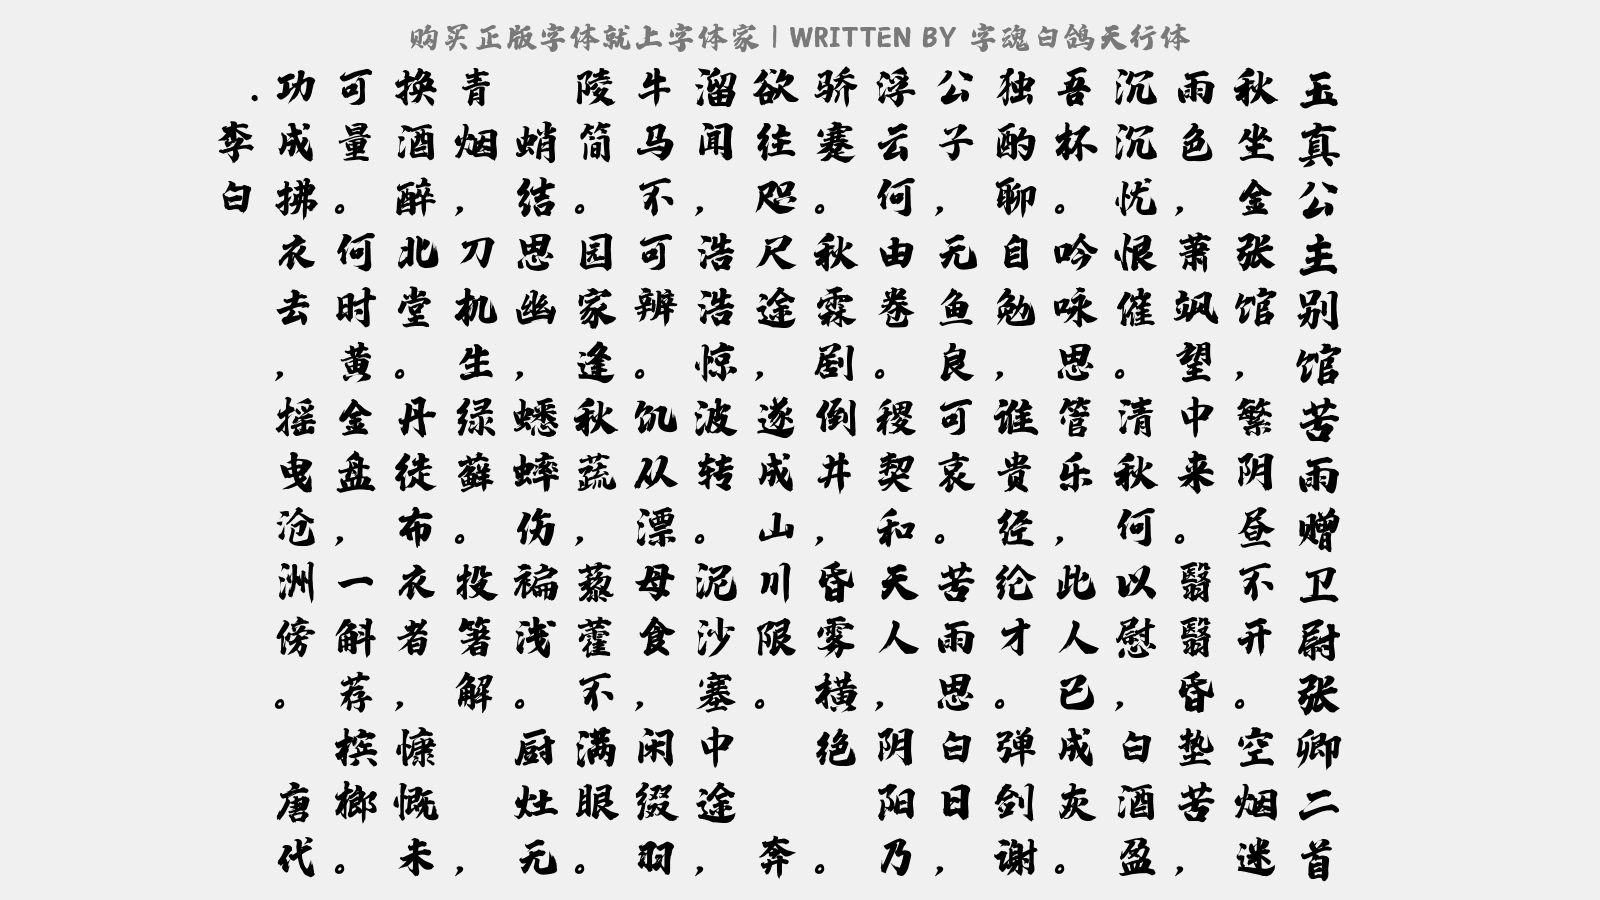 购买正版字体就上字体家 | WRITTEN BY 字魂白鸽天行体
玉真公主别馆苦雨赠卫尉张卿二首
秋坐金张馆，繁阴昼不开。空烟迷
雨色，萧飒望中来。翳翳昏垫苦，
沉沉忧恨催。清秋何以慰，白酒盈
吾杯。吟咏思管乐，此人已成灰。
独酌聊自勉，谁贵经纶才。弹剑谢
公子，无鱼良可哀。苦雨思白日，
浮云何由卷。稷契和天人，阴阳乃
骄蹇。秋霖剧倒井，昏雾横绝 。
欲往咫尺途，遂成山川限。 奔
溜闻，浩浩惊波转。泥沙塞中途，
牛马不可辨。饥从漂母食，闲缀羽
陵简。园家逢秋蔬，藜藿不满眼。
蛸结思幽，蟋蟀伤褊浅。厨灶无
青烟，刀机生绿藓。投箸解 ，
换酒醉北堂。丹徒布衣者，慷慨未
可量。何时黄金盘，一斛荐槟榔。
功成拂衣去，摇曳沧洲傍。 唐代
.李白